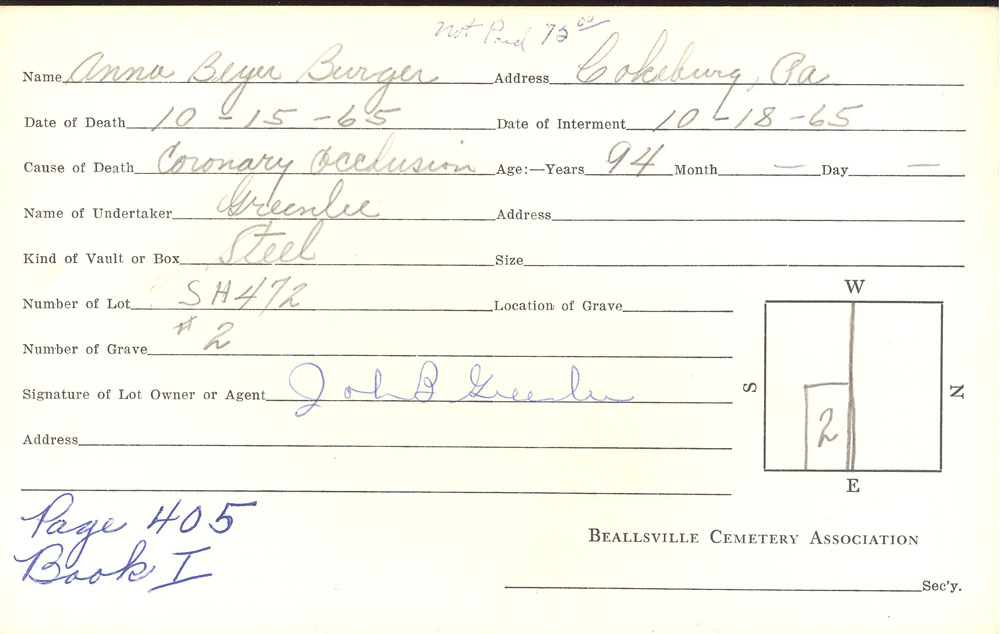 Not Paid 75 00
Name Anna Beyer Burger Address Cokeburg, Pa
Date of Death 10-15-65 Date of Interment 10-18-65
Cause of Death Coronary Occlusion Age:—Years 94 Month — Day —
Name of Undertaker Greenlee Address
Kind of Vault or Box Steel Size
Number of Lot SH472 Location of Grave
Number of Grave #2
Signature of Lot Owner or Agent John B Greenlee
Address
W
S
N
2
E
Page 405
Book I
BEALLSVILLE CEMETERY ASSOCIATION
Sec'y.